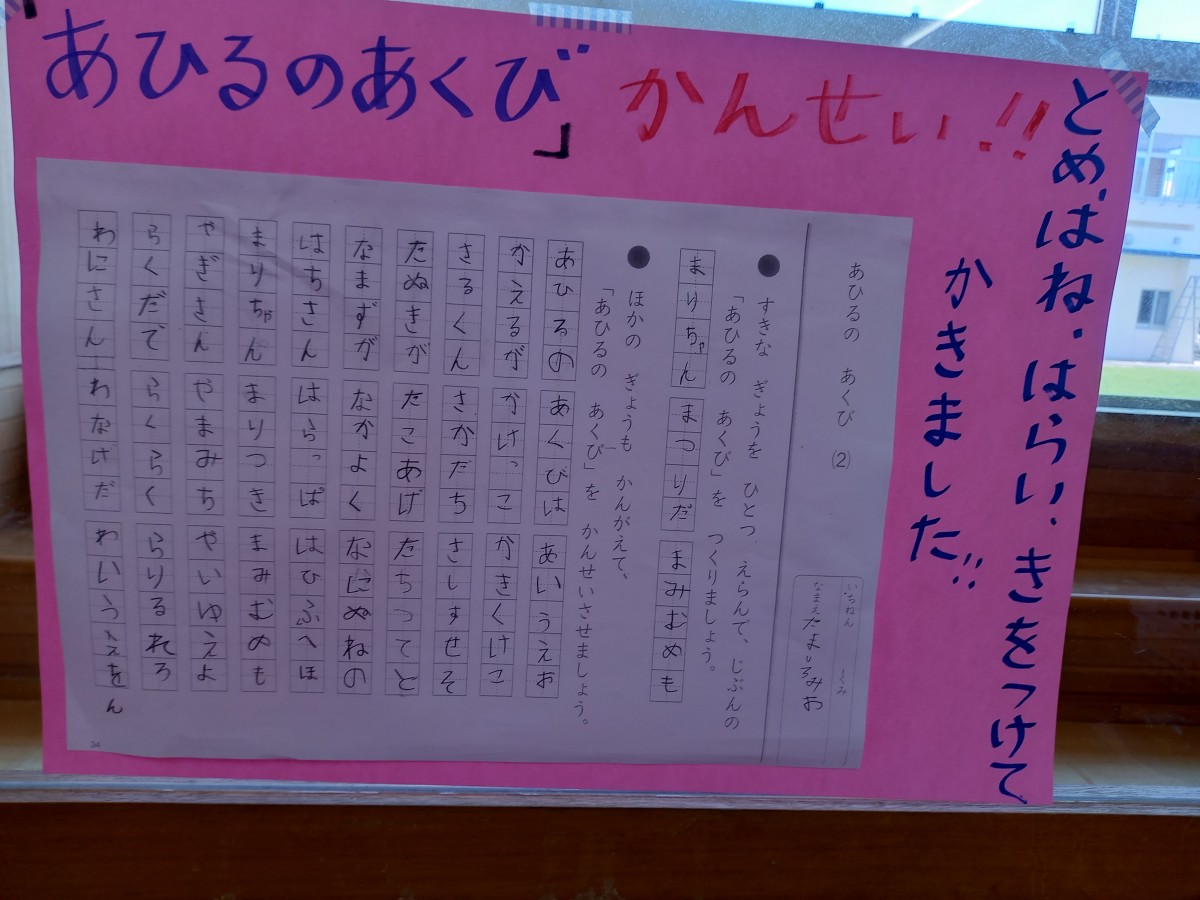 「あひるのあくび」かんせい!!
とめ・はね・はらい・きをつけて
かきました!!
あひるの あくび (2)
いちねん くみ
なまえ たましろみお
● すきな ぎょうを ひとつ えらんで、じぶんの
「あひるの あくび」を つくりましょう。
まりちゃん まつりだ まみむめも
● ほかの ぎょうも かんがえて、
「あひるの あくび」を かんせいさせましょう。
あひるの あくびは あいうえお
かえるが かけっこ かきくけこ
さるくん さかだち さしすせそ
たぬきが たこあげ たちつてと
なまずが なかよく なにぬねの
はちさん はらっぱ はひふへほ
まりちゃん まりつき まみむめも
やぎさん やまみち やいゆえよ
らくだで らくらく らりるれろ
わにさん わなげだ わいうえをん
34